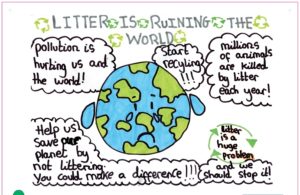 LITTER IS RUINING THE
WORLD
Pollution is
hurting us and
the world!
Start
recyling
!!!
millions
of animals
are killed
by litter
each year!
Help us
save our
planet by
not littering.
You could make a difference !!!
litter
is a
huge
problem
and we
should stop it!